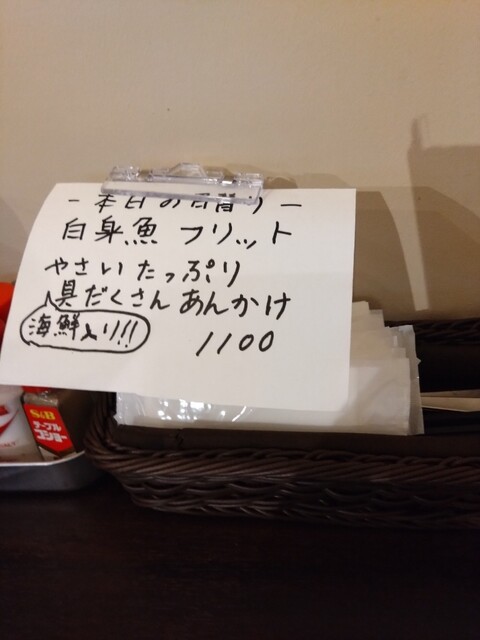 -本日の日替り-
白身魚 フリット
やさいたっぷり
具だくさん あんかけ
海鮮入り!!
1100
S&B
テーブル
コショー